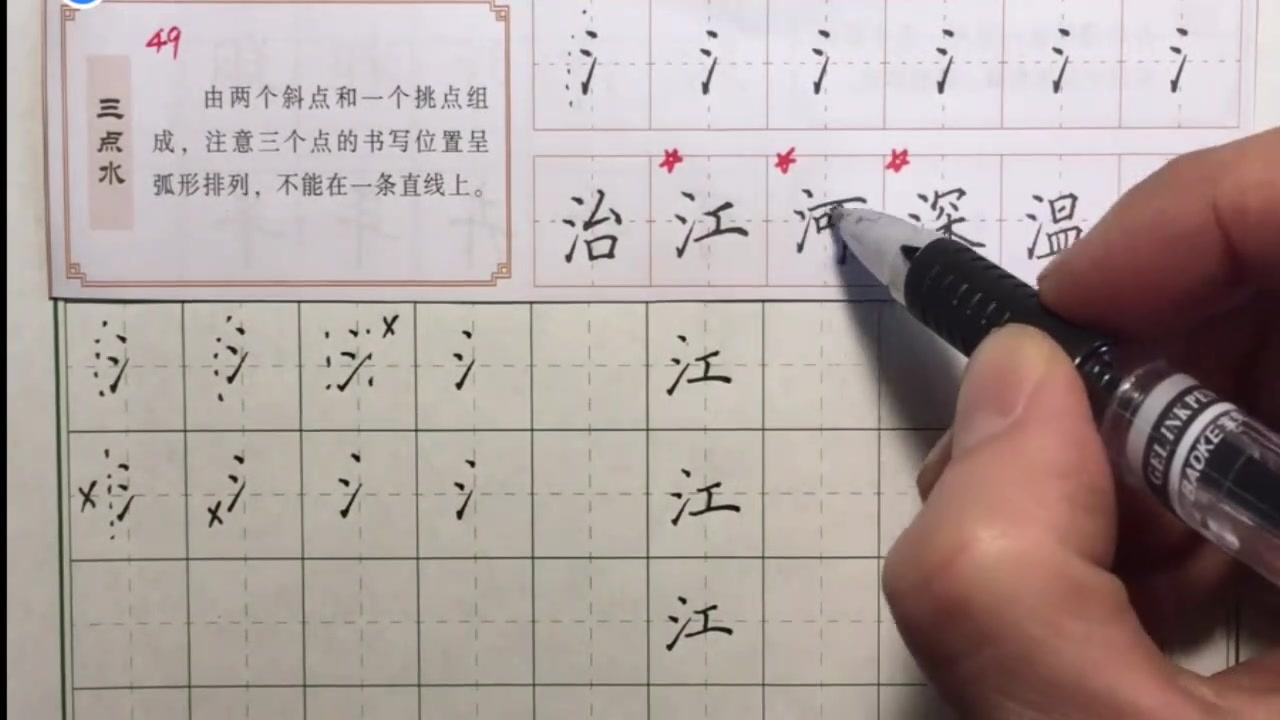 49
三点水
由两个斜点和一个挑点组
成，注意三个点的书写位置呈
弧形排列，不能在一条直线上。
氵 氵 氵 氵 氵 氵
治 江 河 深 温
氵 氵 氵 x 氵 江
x 氵 x 氵 氵 氵 江
江
GEL INKPE
BAOKE